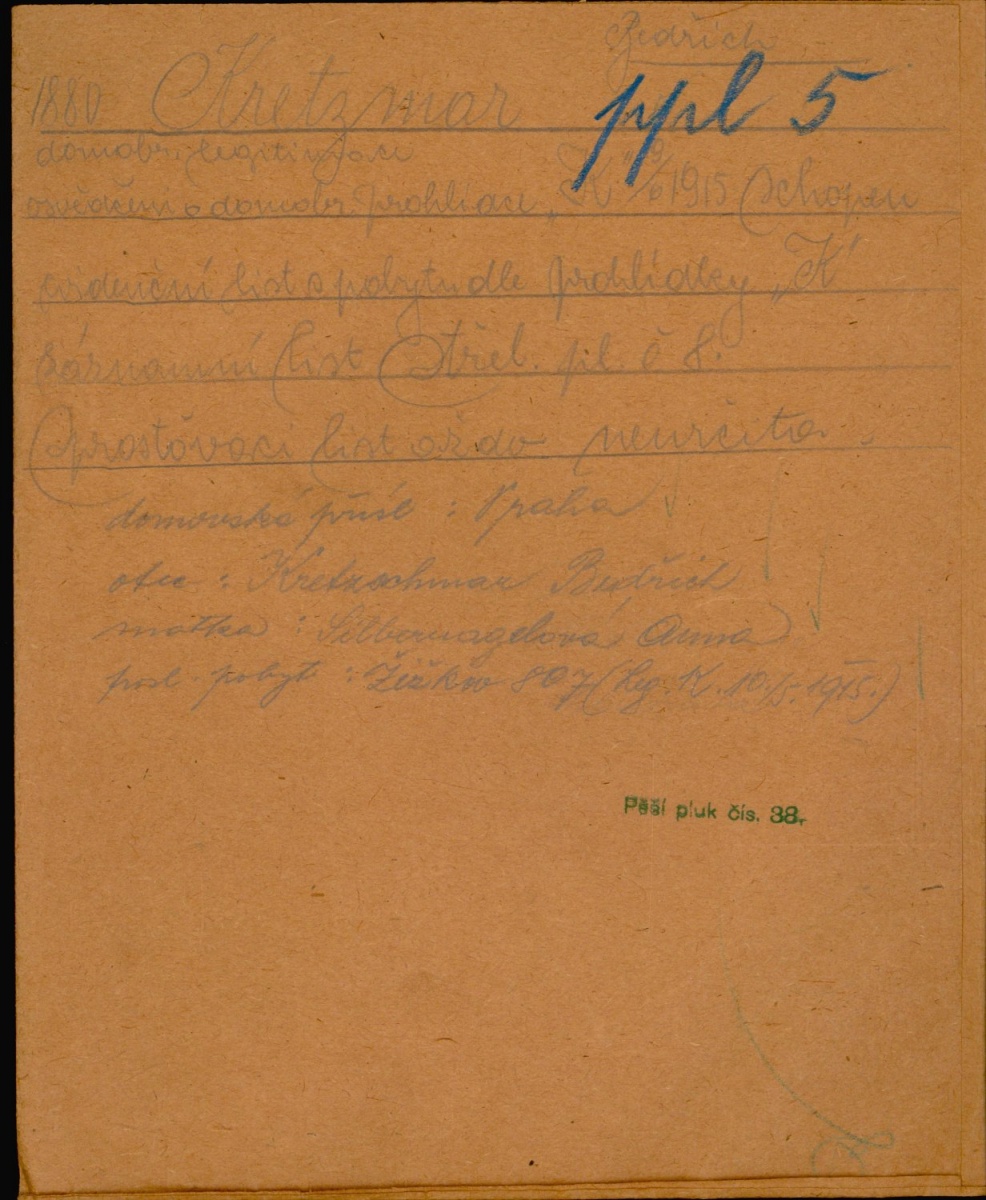 Bedřich
1880 Kretzmar ppl 5
domobr. legitimaci
osvědčení o domobr. prohlídce „K" 1915 schopen
evidenční list o pobytu dle prohlídky „K"
záznamní list Střel. pl. č 8.
Sprošťovací list až do neurčita.
domovská přísl : Praha
otec : Kretzschmar Bedřich
matka : Silbernagelová Anna
posl. pobyt : Žižkov 807 (leg. K. 10./5. 1915.)
Pěší pluk čís. 38.